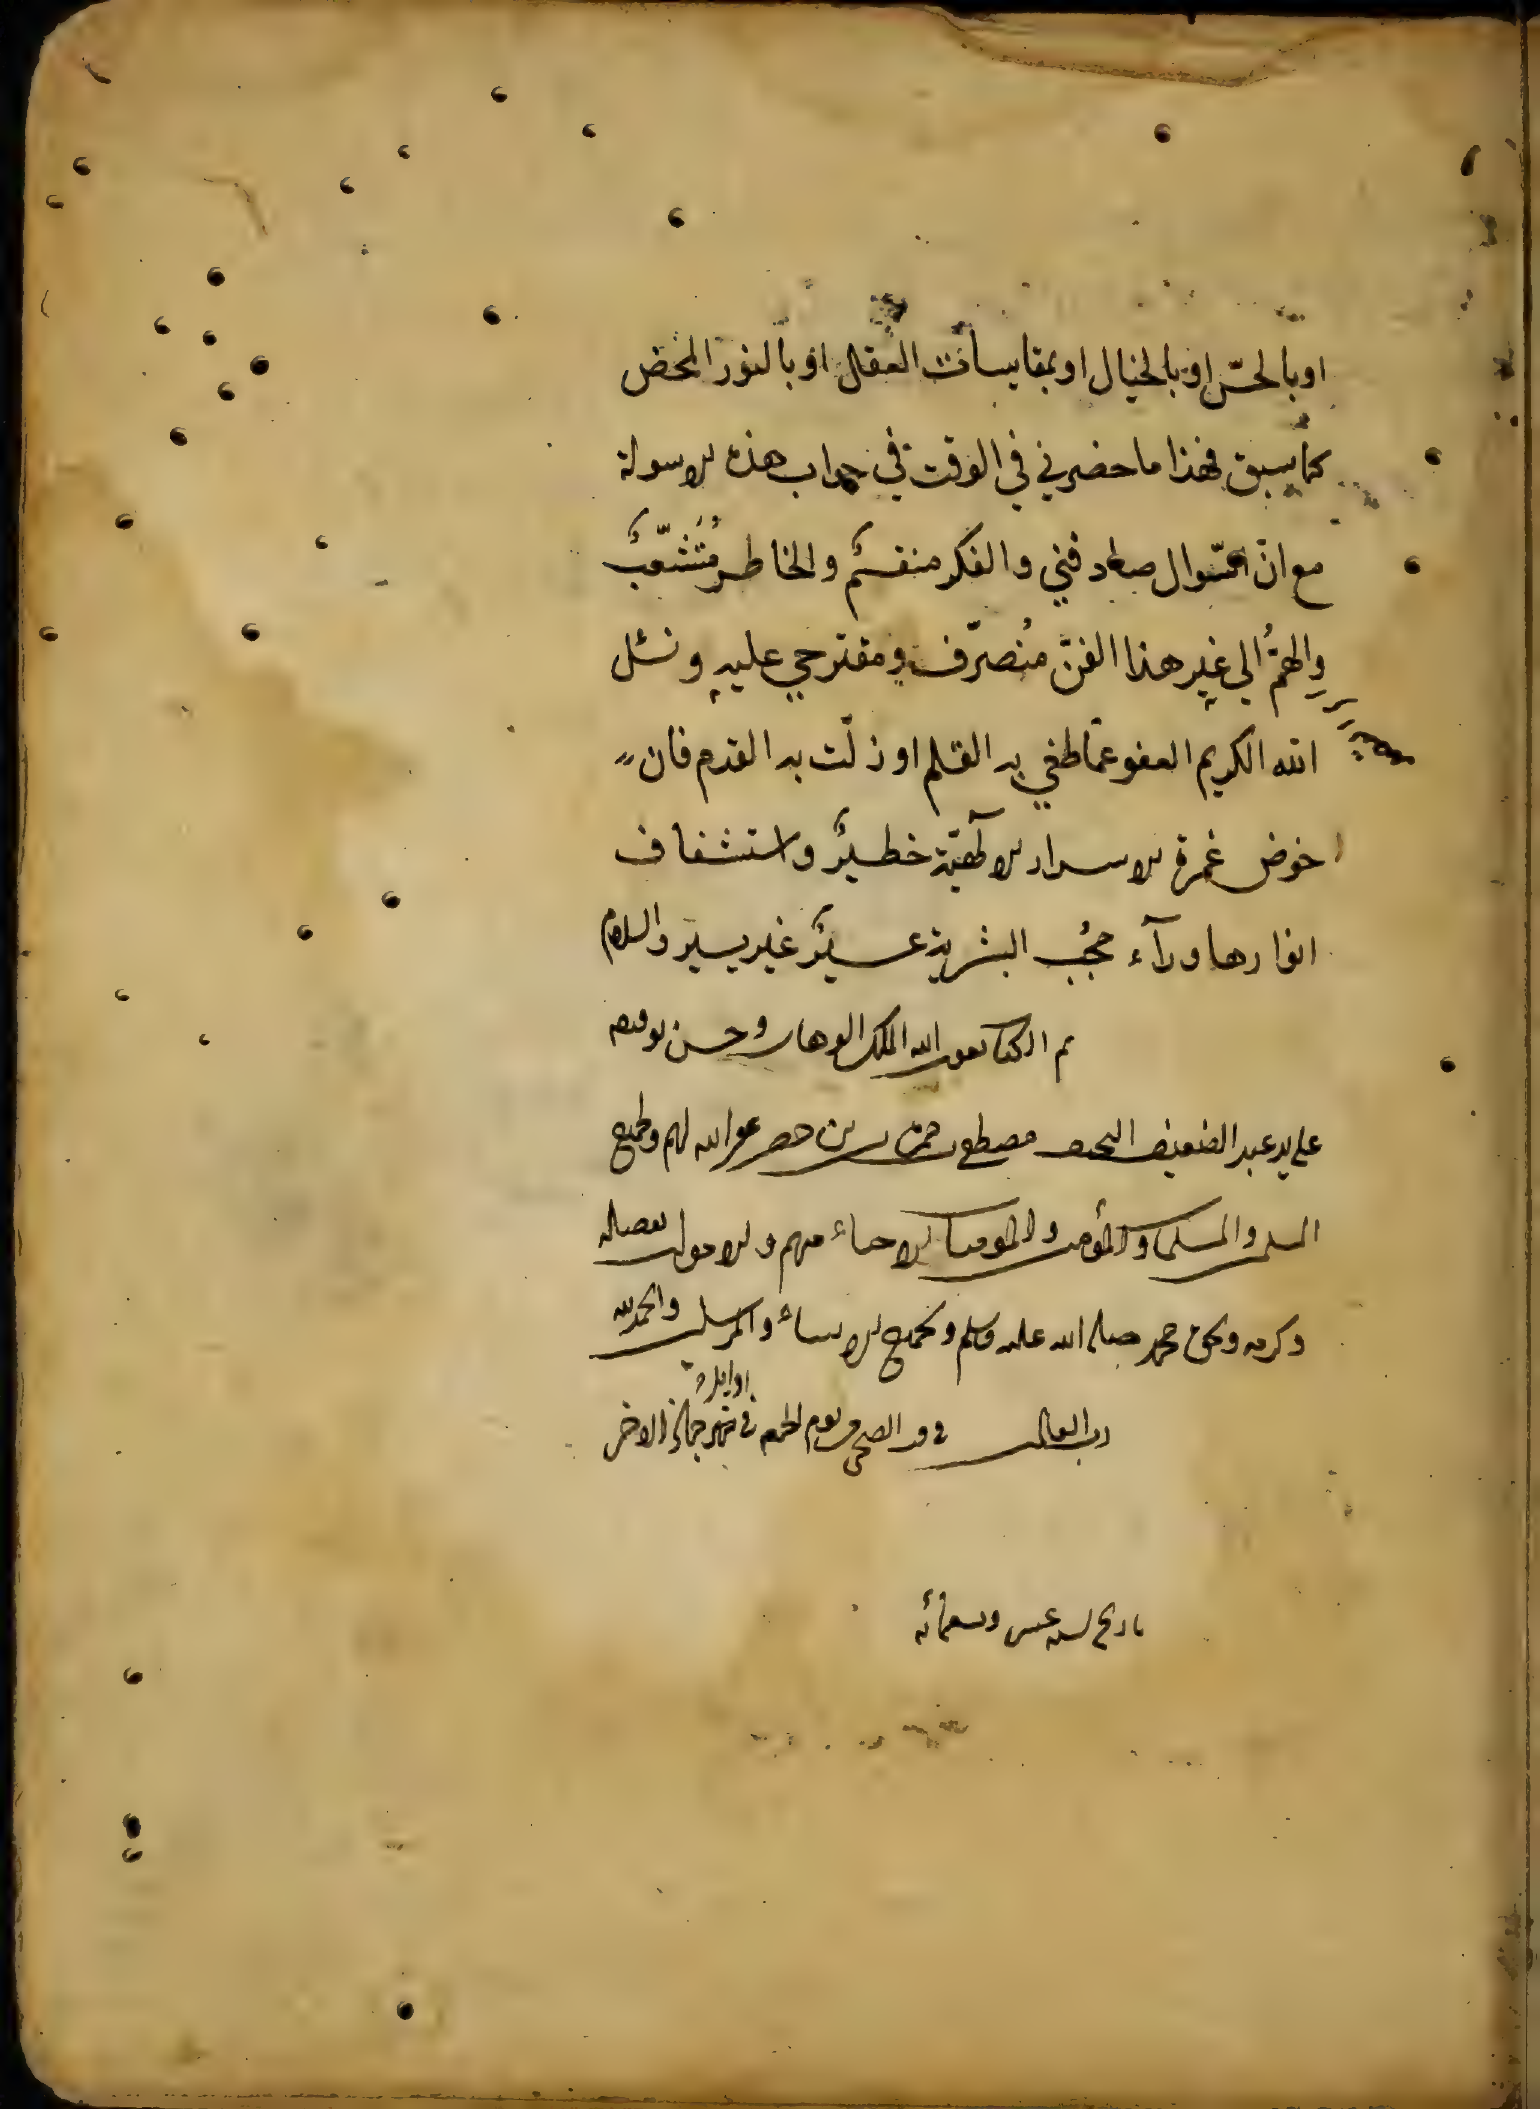 او بالحسّ او بالخيال او بمقايسات العقل او بالنور المحض
كما سبق فهذا ما حضرني في الوقت في جواب هذه الاسولة
مع انّ السّوال صادفني والفكر منقسمٌ والخاطر مُتَشَعِّبٌ
والهمُّ الي غير هذا الفنّ مُنصرّف ومقترحي عليه ونسئل
الله الكريم العفو عمّا طغي به القلم او زلّت به القدم فان
خوض غمرة الاسرار الآلهيّة خطيرٌ واستشفاف
انوارها ورآء حجُب البشرية عسيرٌ غير يسير والسلام
تم الكتاب بعون الله الملك الوهاب وحسن توفيقه
علي يد عبد الضعيف النحيف مصطفي بن حمزه بن غفر الله لهم ولجميع
المسلمين والمسلمات والمؤمنين والمؤمنات الاحياء منهم والاموات بفضله
وكرمه وبحق محمد صلي الله عليه وسلم وبجميع الانبياء والمرسلين والحمد لله
رب العالمين في وقت الضحي في يوم في اوايل شهر جماذي الاخر
تاريخ سنه وتسعمائه